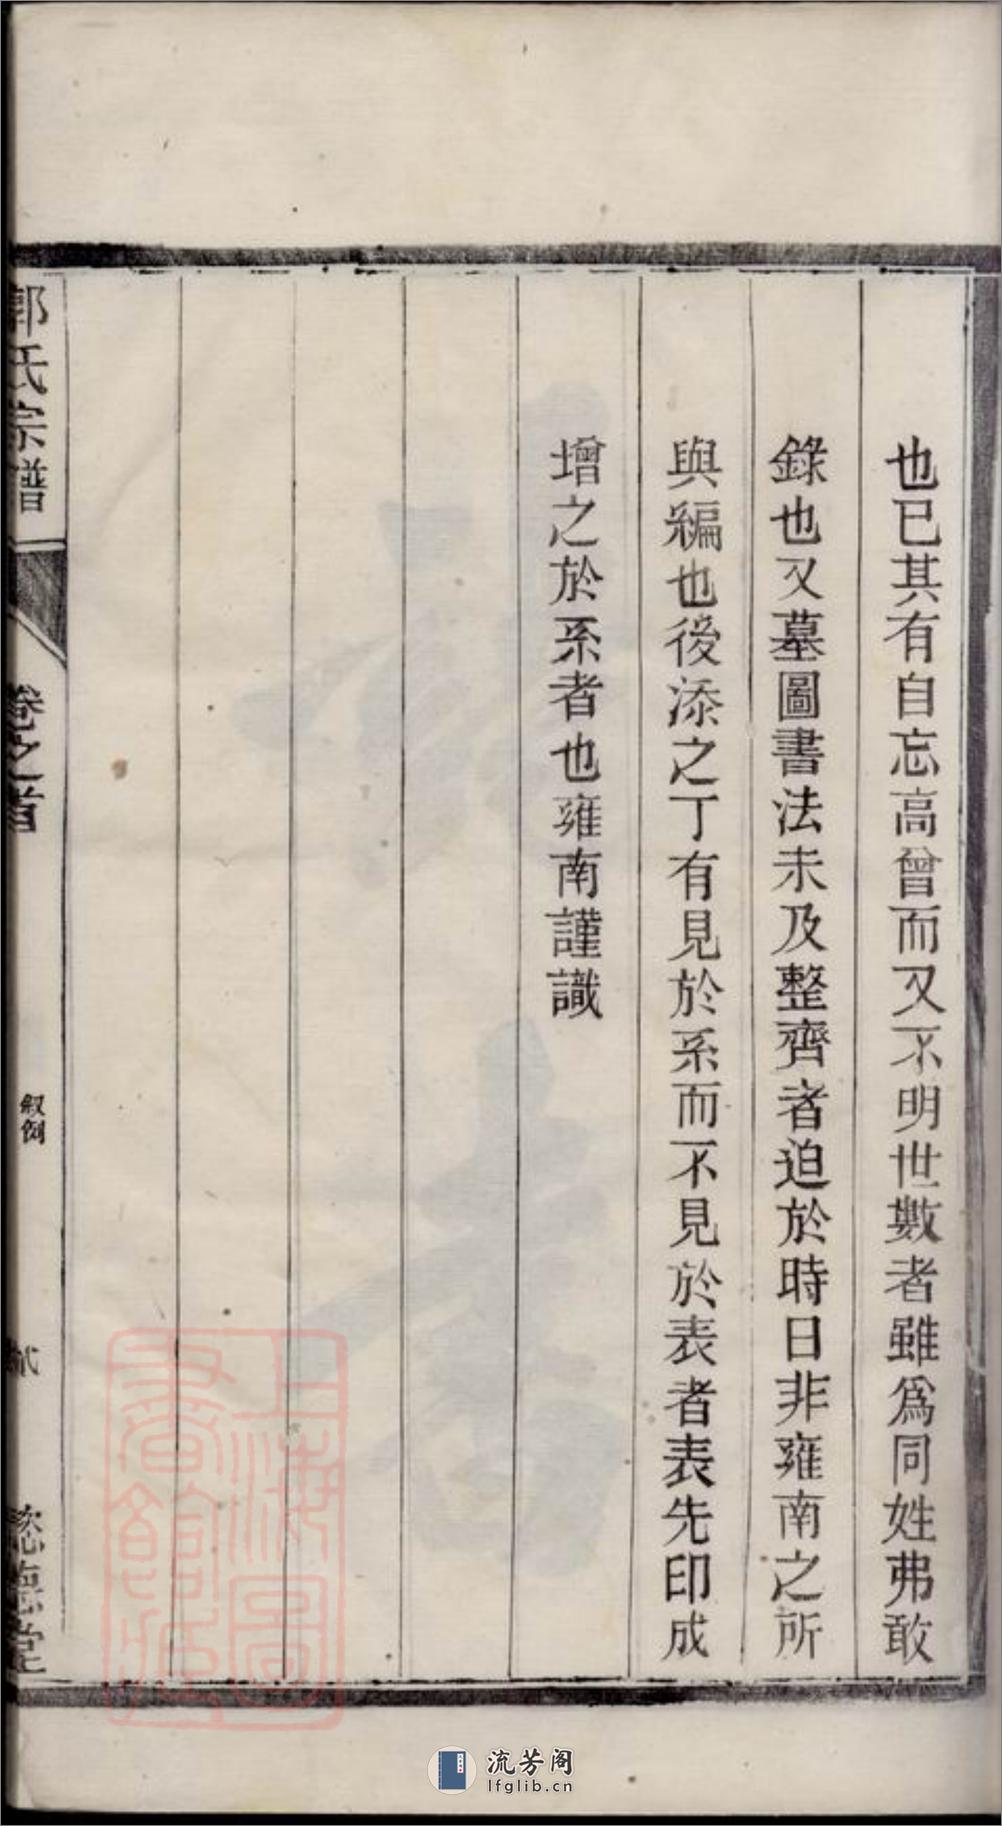 也已其有自忘高曾而又不明世數者雖爲同姓弗敢
錄也又墓圖書法未及整齊者迫於時日非雍南之所
與編也後添之丁有見於系而不見於表者表先印成
增之於系者也雍南謹識
郭氏宗譜
卷之首
叙例
弍
德堂
上海圖
書館藏
流芳阁
lfglib.cn